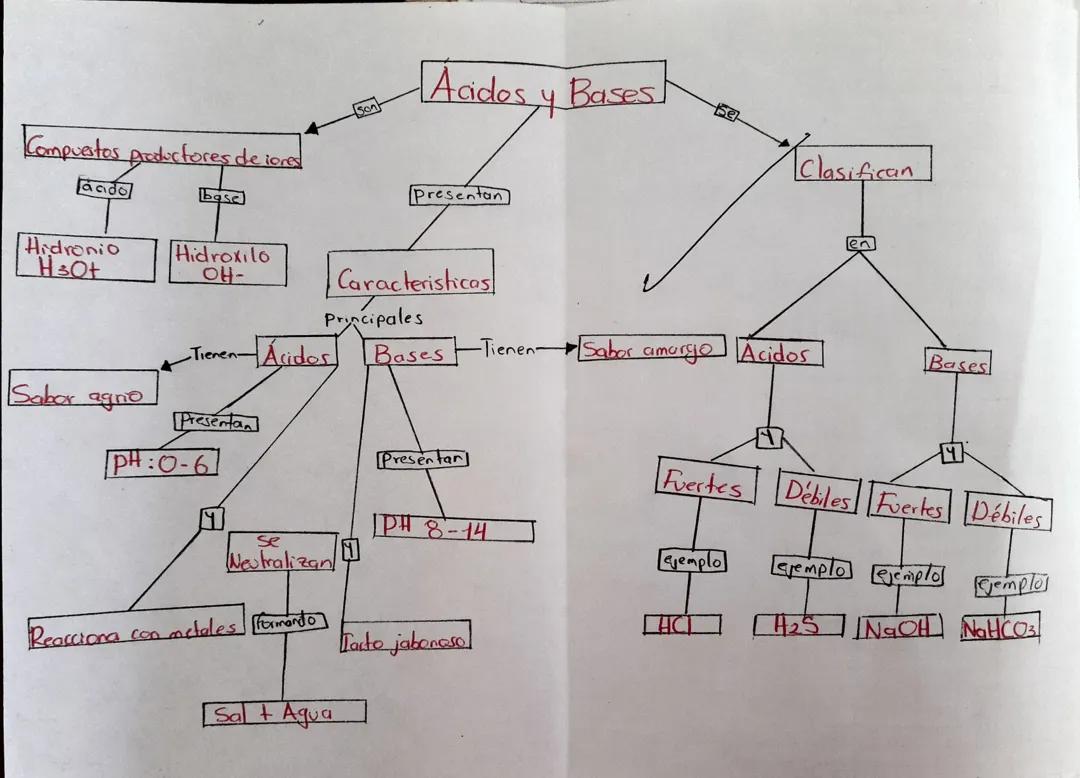 Ácidos y Bases
son
se
Compuestos productores de iones
Clasifican
ácido
base
presentan
en
Hidronio
H3O+
Hidroxilo
OH-
Caracteristicas
Principales
Tienen
Ácidos
Bases
Tienen
Sabor amargo
Acidos
Bases
Sabor agrio
Presentan
Presentan
y
y
pH:0-6
Fuertes
Débiles
Fuertes
Débiles
y
se
Neutralizan
y
PH 8-14
ejemplo
ejemplo
ejemplo
ejemplo
Reacciona con metales
formando
Tacto jabonoso
HCl
H2S
NaOH
NaHCO3
Sal + Agua